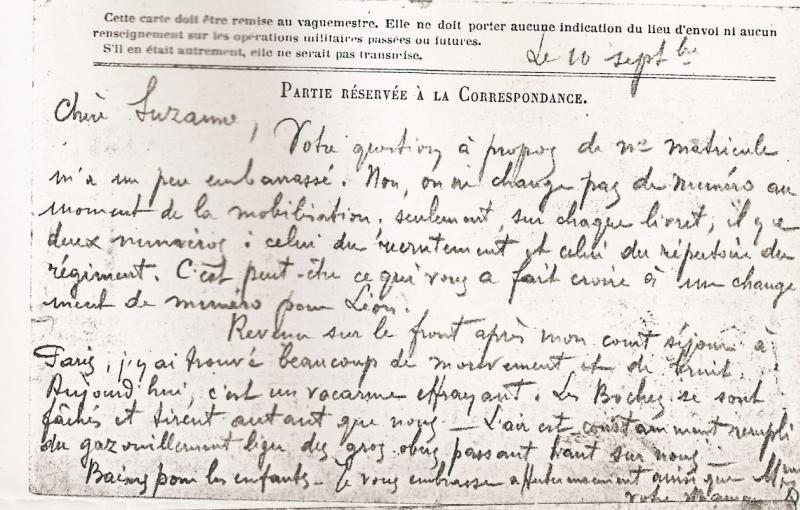 Cette carte doit être remise au vaguemestre. Elle ne doit porter aucune indication du lieu d'envoi ni aucun
renseignement sur les opérations militaires passées ou futures.
S'il en était autrement, elle ne serait pas transmise.
Le 10 septbre
PARTIE RÉSERVÉE À LA CORRESPONDANCE.
Chère Suzanne,
Votre question à propos de no matricule
m'a un peu embarrassé. Non, on ne change pas de numéro au
moment de la mobilisation, seulement, sur chaque livret, il y a
deux numéros : celui du recrutement et celui du répertoire du
régiment. C'est peut-être ce qui vous a fait croire à un change
ment de numéro pour Léon.
Revenu sur le front après mon court séjour à
Paris, j'y ai trouvé beaucoup de mouvement et de bruit.
Aujourd'hui, c'est un vacarme effrayant. Les Boches se sont
fâchés et tirent autant que nous — L'air est constamment rempli
du gazouillement des gros obus passant haut sur nous —
Baisers pour les enfants — Je vous embrasse affectueusement ainsi que
votre